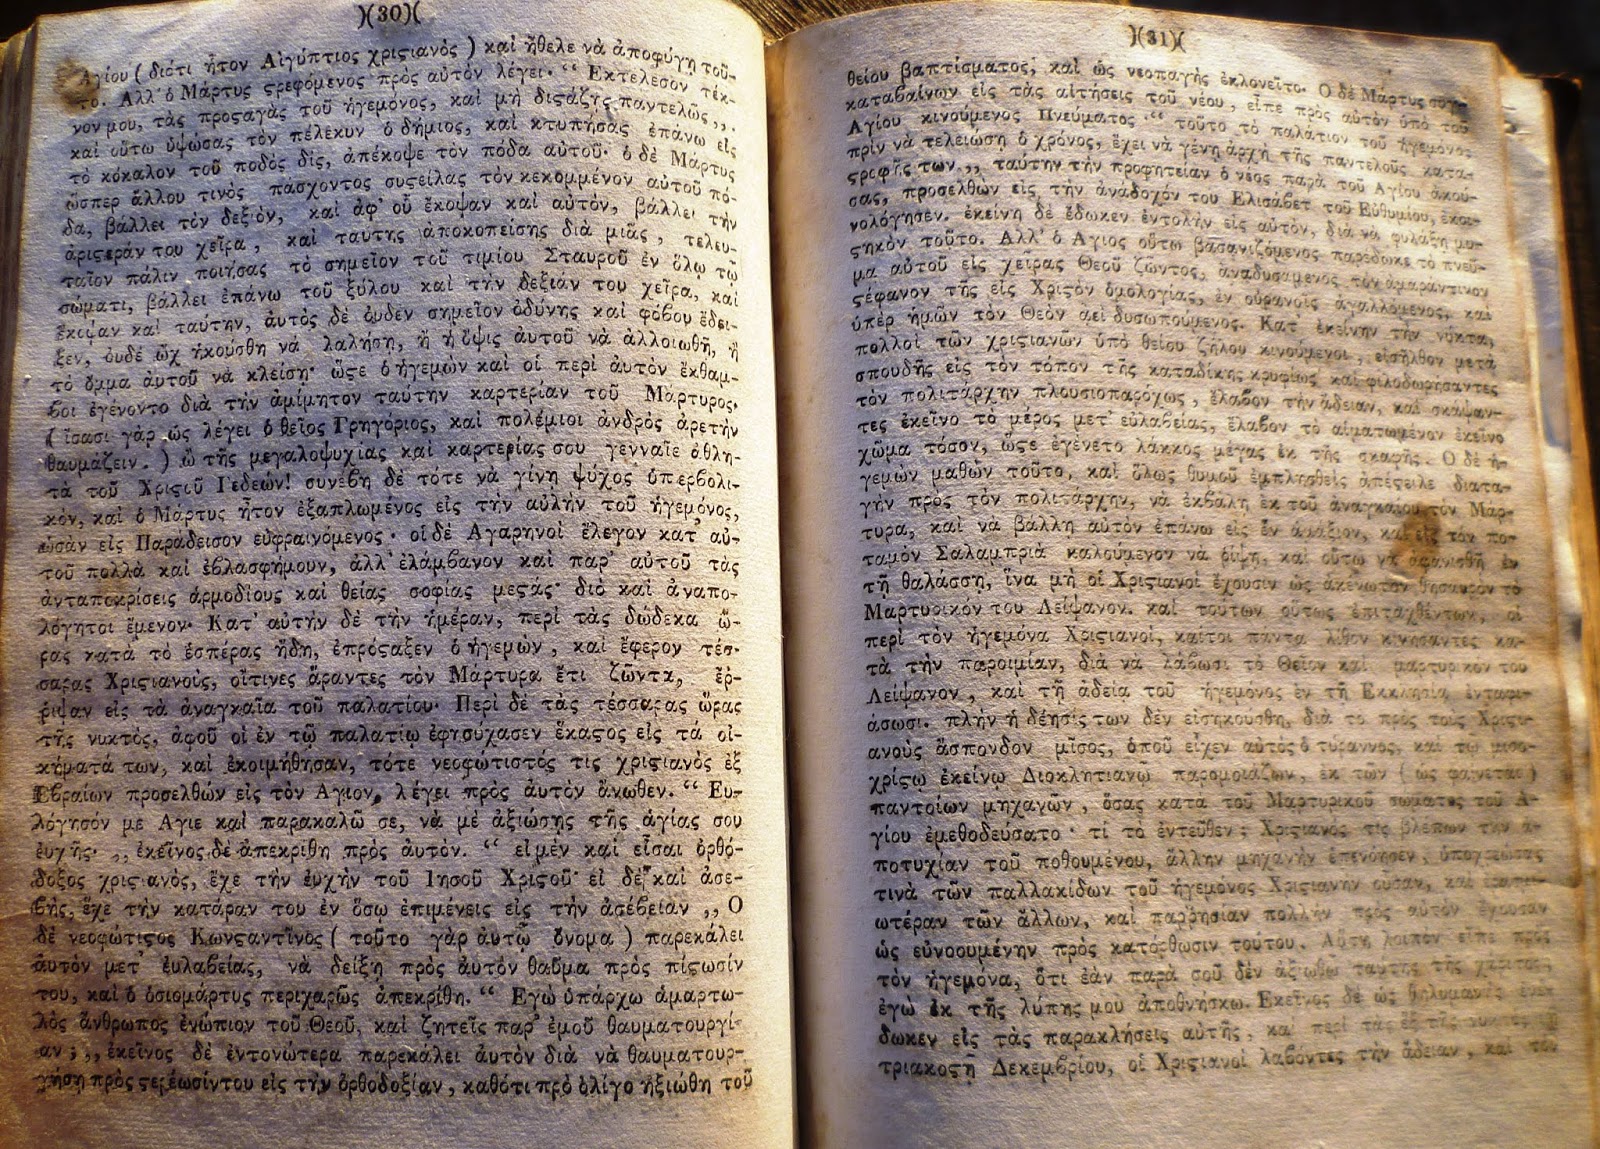 )(30)(
Αγίου ( διότι ἦτον Αἰγύπτιος χριϛιανὸς ) καὶ ἤθελε νὰ ἀποφύγῃ τοῦ-
το. Αλλ' ὁ Μάρτυς ϛρεφόμενος πρὸς αὐτὸν λέγει· “ Εκτέλεσον τέκ-
νον μου, τὰς προϛαγὰς τοῦ ἡγεμόνος, καὶ μὴ διϛάζῃς παντελῶς ,,.
καὶ οὕτω ὑψώσας τὸν πέλεκυν ὁ δήμιος, καὶ κτυπήσας ἐπάνω εἰς
τὸ κόκαλον τοῦ ποδὸς δὶς, ἀπέκοψε τὸν πόδα αὐτοῦ· ὁ δὲ Μάρτυς
ὥσπερ ἄλλου τινὸς πάσχοντος συϛείλας τὸν κεκομμένον αὐτοῦ πό-
δα, βάλλει τὸν δεξιὸν, καὶ ἀφ' οὗ ἔκοψαν καὶ αὐτὸν, βάλλει τὴν
ἀριϛεράν του χεῖρα, καὶ ταύτης ἀποκοπείσης διὰ μιᾶς, τελευ-
ταῖον πάλιν ποιήσας τὸ σημεῖον τοῦ τιμίου Σταυροῦ ἐν ὅλῳ τῷ
σώματι, βάλλει ἐπάνω τοῦ ξύλου καὶ τὴν δεξιάν του χεῖρα, καὶ
ἔκοψαν καὶ ταύτην, αὐτὸς δὲ οὐδὲν σημεῖον ὀδύνης καὶ φόβου ἔδει-
ξεν, οὐδὲ ὢχ ἠκούσθη νὰ λαλήσῃ, ἢ ἡ ὄψις αὐτοῦ νὰ ἀλλοιωθῇ, ἢ
τὸ ὄμμα ἀυτοῦ νὰ κλείσῃ· ὥϛε ὁ ἡγεμὼν καὶ οἱ περὶ αὐτὸν ἔκθαμ-
βοι ἐγένοντο διὰ τὴν ἀμίμητον ταύτην καρτερίαν τοῦ Μάρτυρος.
( ἴσασι γὰρ ὡς λέγει ὁ θεῖος Γρηγόριος, καὶ πολέμιοι ἀνδρὸς ἀρετὴν
θαυμάζειν. ) ὢ τῆς μεγαλοψυχίας καὶ καρτερίας σου γενναῖε ἀθλη-
τὰ τοῦ Χριϛοῦ Γεδεών! συνέβη δὲ τότε νὰ γίνῃ ψύχος ὑπερβολι-
κὸν, καὶ ὁ Μάρτυς ἦτον ἐξαπλωμένος εἰς τὴν αὐλὴν τοῦ ἡγεμόνος,
ὡσὰν εἰς Παράδεισον εὐφραινόμενος· οἱ δὲ Αγαρηνοὶ ἔλεγον κατ' αὐ-
τοῦ πολλὰ καὶ ἐβλασφήμουν, ἀλλ' ἐλάμβανον καὶ παρ' αὐτοῦ τὰς
ἀνταποκρίσεις ἁρμοδίους καὶ θείας σοφίας μεϛάς· διὸ καὶ ἀναπο-
λόγητοι ἔμενον· Κατ' αὐτὴν δὲ τὴν ἡμέραν, περὶ τὰς δώδεκα ὥ-
ρας κατὰ τὸ ἑσπέρας ἤδη, ἐπρόϛαξεν ὁ ἡγεμὼν, καὶ ἔφερον τέσ-
σαρας Χριϛιανοὺς, οἵτινες ἄραντες τὸν Μάρτυρα ἔτι ζῶντα, ἔρ-
ριψαν εἰς τὰ ἀναγκαῖα τοῦ παλατίου· Περὶ δὲ τὰς τέσσαρας ὥρας
τῆς νυκτὸς, ἀφοῦ οἱ ἐν τῷ παλατίῳ ἐφησύχασεν ἕκαϛος εἰς τὰ οἰ-
κήματά των, καὶ ἐκοιμήθησαν, τότε νεοφώτιϛός τις χριϛιανὸς ἐξ
Εβραίων προσελθὼν εἰς τὸν Αγιον, λέγει πρὸς ἀυτὸν ἄνωθεν. “ Ευ-
λόγησόν με Αγιε καὶ παρακαλῶ σε, νὰ μὲ ἀξιώσῃς τῆς ἁγίας σου
ἐυχῆς· ,, ἐκεῖνος δὲ ἀπεκρίθη πρὸς ἀυτόν. “ εἰ μὲν καὶ εἶσαι ὀρθό-
δοξος χριϛιανὸς, ἔχε τὴν ἐυχὴν τοῦ Ιησοῦ Χριϛοῦ· εἰ δὲ καὶ ἀσε-
βὴς, ἔχε τὴν κατάραν του ἐν ὅσῳ ἐπιμένεις εἰς τὴν ἀσέβειαν ,, Ο
δὲ νεοφώτιϛος Κωνϛαντῖνος ( τοῦτο γὰρ ἀυτῷ ὄνομα ) παρεκάλει
ἀυτὸν μετ' ἐυλαβείας, νὰ δείξῃ πρὸς ἀυτὸν θαῦμα πρὸς πίϛωσίν
του, καὶ ὁ ὁσιομάρτυς περιχαρῶς ἀπεκρίθη. “ Εγὼ ὑπάρχω ἁμαρτω-
λὸς ἄνθρωπος ἐνώπιον τοῦ Θεοῦ, καὶ ζητεῖς παρ' ἐμοῦ θαυματουργί-
αν ; ,, ἐκεῖνος δὲ ἐντονώτερα παρεκάλει ἀυτὸν διὰ νὰ θαυματουρ-
γήσῃ πρὸς ϛερέωσίν του εἰς τὴν ὀρθοδοξίαν, καθότι πρὸ ὀλίγο ἠξιώθη τοῦ
)(31)(
θείου βαπτίσματος, καὶ ὡς νεοπαγὴς ἐκλονεῖτο· Ο δὲ Μάρτυς
καταβαίνων εἰς τὰς αἰτήσεις τοῦ νέου, εἶπε πρὸς αὐτὸν ὑπὸ τοῦ
Αγίου κινούμενος Πνεύματος “ τοῦτο τὸ παλάτιον τοῦ ἡγεμόνος
πρὶν νὰ τελειώσῃ ὁ χρόνος, ἔχει νὰ γένῃ ἀρχὴ τῆς παντελοῦς κατα-
ϛροφῆς των ,, ταύτην τὴν προφητείαν ὁ νέος παρὰ τοῦ Αγίου ἀκού-
σας, προσελθὼν εἰς τὴν ἀναδοχόν του Ελισάβετ τοῦ Εὐθυμίου,
νολόγησεν. ἐκείνη δὲ ἔδωκεν ἐντολὴν εἰς αὐτὸν, διὰ νὰ φυλάξῃ μυ-
ϛηκὸν τοῦτο. Αλλ' ὁ Αγιος οὕτω βασανιζόμενος παρέδωκε τὸ πνεῦ-
μα αὐτοῦ εἰς χεῖρας Θεοῦ ζῶντος, ἀναδυσάμενος τὸν ἀμαράντινον
ϛέφανον τῆς εἰς Χριϛὸν ὁμολογίας, ἐν οὐρανοῖς ἀγαλλόμενος, καὶ
ὑπὲρ ἡμῶν τὸν Θεὸν ἀεὶ δυσωπούμενος. Κατ' ἐκείνην τὴν νύκτα,
πολλοὶ τῶν χριϛιανῶν ὑπὸ θείου ζήλου κινούμενοι, εἰσῆλθον μετὰ
σπουδῆς εἰς τὸν τόπον τῆς καταδίκης κρυφίως καὶ φιλοδωρήσαντες
τὸν πολιτάρχην πλουσιοπαρόχως, ἔλαβον τὴν ἄδειαν, καὶ σκάψαν-
τες ἐκεῖνο τὸ μέρος μετ' εὐλαβείας, ἔλαβον τὸ αἱματωμένον ἐκεῖνο
χῶμα τόσον, ὥϛε ἐγένετο λάκκος μέγας ἐκ τῆς σκαφῆς. Ο δὲ ἡ-
γεμὼν μαθὼν τοῦτο, καὶ ὅλως θυμοῦ ἐμπλησθεὶς ἀπέϛειλε διατα-
γὴν πρὸς τὸν πολιτάρχην, νὰ ἐκβάλῃ ἐκ τοῦ ἀναγκαίου τὸν Μάρ-
τυρα, καὶ νὰ βάλλῃ αὐτὸν ἐπάνω εἰς ἓν ἁμάξιον, καὶ εἰς τὸν πο-
ταμὸν Σαλαμπριὰ καλούμενον νὰ ῥίψῃ, καὶ οὕτω νὰ ἀφανισθῇ ἐν
τῇ θαλάσσῃ, ἵνα μὴ οἱ Χριϛιανοὶ ἔχουσιν ὡς ἀκένωτον θησαυρὸν τὸ
Μαρτυρικόν του Λείψανον. καὶ τούτων οὕτως ἐπιταχθέντων, οἱ
περὶ τὸν ἡγεμόνα Χριϛιανοὶ, καίτοι πάντα λίθον κινήσαντες κα-
τὰ τὴν παροιμίαν, διὰ νὰ λάβωσι τὸ Θεῖον καὶ μαρτυρικόν του
Λείψανον, καὶ τῇ ἀδείᾳ τοῦ ἡγεμόνος ἐν τῇ Εκκλησίᾳ ἐνταφι-
άσωσι. πλὴν ἡ δέησίς των δὲν εἰσηκούσθη, διὰ τὸ πρὸς τοὺς Χριϛι-
ανοὺς ἄσπονδον μῖσος, ὁποῦ εἶχεν αὐτὸς ὁ τύραννος, καὶ τῷ μισο-
χρίϛῳ ἐκείνῳ Διοκλητιανῷ παρομοιάζων, ἐκ τῶν ( ὡς φαίνεται )
παντοίων μηχανῶν, ὅσας κατὰ τοῦ Μαρτυρικοῦ σώματος τοῦ Α-
γίου ἐμεθοδεύσατο· τί τὸ ἐντεῦθεν; Χριϛιανὸς τὶς βλέπων τὴν ἀ-
ποτυχίαν τοῦ ποθουμένου, ἄλλην μηχανὴν ἐπενόησεν, ὑποχρεώσας
τινὰ τῶν παλλακίδων τοῦ ἡγεμόνος Χριϛιανὴν οὖσαν, καὶ
ωτέραν τῶν ἄλλων, καὶ παῤῥησίαν πολλὴν πρὸς αὐτὸν ἔχουσαν
ὡς εὐνοουμένην πρὸς κατόρθωσιν τούτου. Αὕτη λοιπὸν εἶπε πρὸς
τὸν ἡγεμόνα, ὅτι ἐὰν παρὰ σοῦ δὲν ἀξιωθῶ ταύτης τῆς χάριτος,
ἐγὼ ἐκ τῆς λύπης μου ἀποθνήσκω. Εκεῖνος δὲ ὡς θηλυμανὴς ἐνέ-
δωκεν εἰς τὰς παρακλήσεις αὐτῆς, καὶ περὶ τὰς ἓξ τῆς νυκτὸς
τριακοϛῇ Δεκεμβρίου, οἱ Χριϛιανοὶ λαβόντες τὴν ἄδειαν, καὶ τὸν